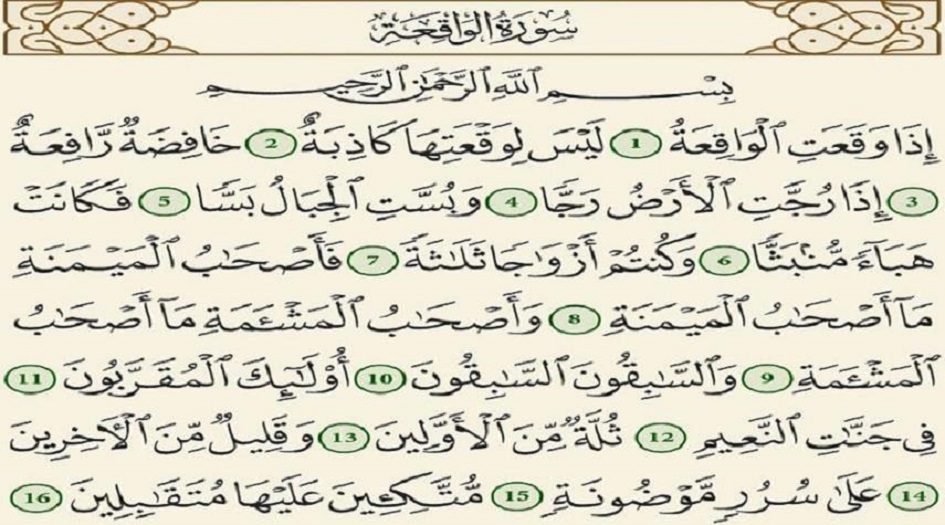 سُورَةُ الوَاقِعَةِ
بِسْمِ ٱللَّهِ ٱلرَّحْمَٰنِ ٱلرَّحِيمِ
إِذَا وَقَعَتِ ٱلْوَاقِعَةُ 1 لَيْسَ لِوَقْعَتِهَا كَاذِبَةٌ 2 خَافِضَةٌ رَّافِعَةٌ
3 إِذَا رُجَّتِ ٱلْأَرْضُ رَجًّا 4 وَبُسَّتِ ٱلْجِبَالُ بَسًّا 5 فَكَانَتْ
هَبَآءً مُّنۢبَثًّا 6 وَكُنتُمْ أَزْوَٰجًا ثَلَٰثَةً 7 فَأَصْحَٰبُ ٱلْمَيْمَنَةِ
مَآ أَصْحَٰبُ ٱلْمَيْمَنَةِ 8 وَأَصْحَٰبُ ٱلْمَشْـَٔمَةِ مَآ أَصْحَٰبُ
ٱلْمَشْـَٔمَةِ 9 وَٱلسَّٰبِقُونَ ٱلسَّٰبِقُونَ 10 أُو۟لَٰٓئِكَ ٱلْمُقَرَّبُونَ 11
فِى جَنَّٰتِ ٱلنَّعِيمِ 12 ثُلَّةٌ مِّنَ ٱلْأَوَّلِينَ 13 وَقَلِيلٌ مِّنَ ٱلْءَاخِرِينَ
14 عَلَىٰ سُرُرٍ مَّوْضُونَةٍ 15 مُّتَّكِـِٔينَ عَلَيْهَا مُتَقَٰبِلِينَ 16